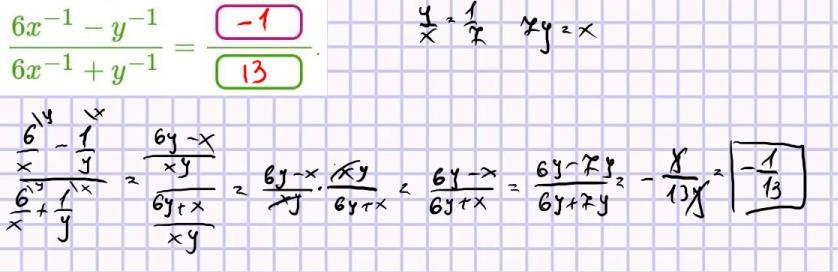 (6x⁻¹ − y⁻¹)/(6x⁻¹ + y⁻¹) = (−1)/(13).
y/x = 1/7   7y = x
(6\y/x − 1\x/y)/(6\y/x + 1\x/y) = ((6y−x)/(xy))/((6y+x)/(xy)) = (6y−x)/(xy) · (xy)/(6y+x) = (6y−x)/(6y+x) = (6y−7y)/(6y+7y) = −y/(13y) = −1/13